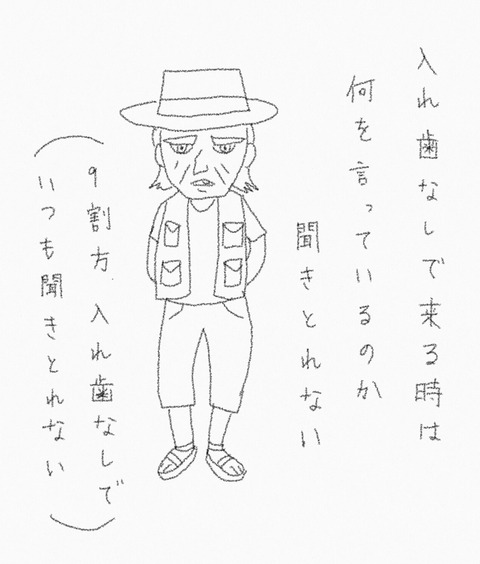 入れ歯なしで来る時は
何を言っているのか
聞きとれない
(9割方、入れ歯なしで
いつも聞きとれない)